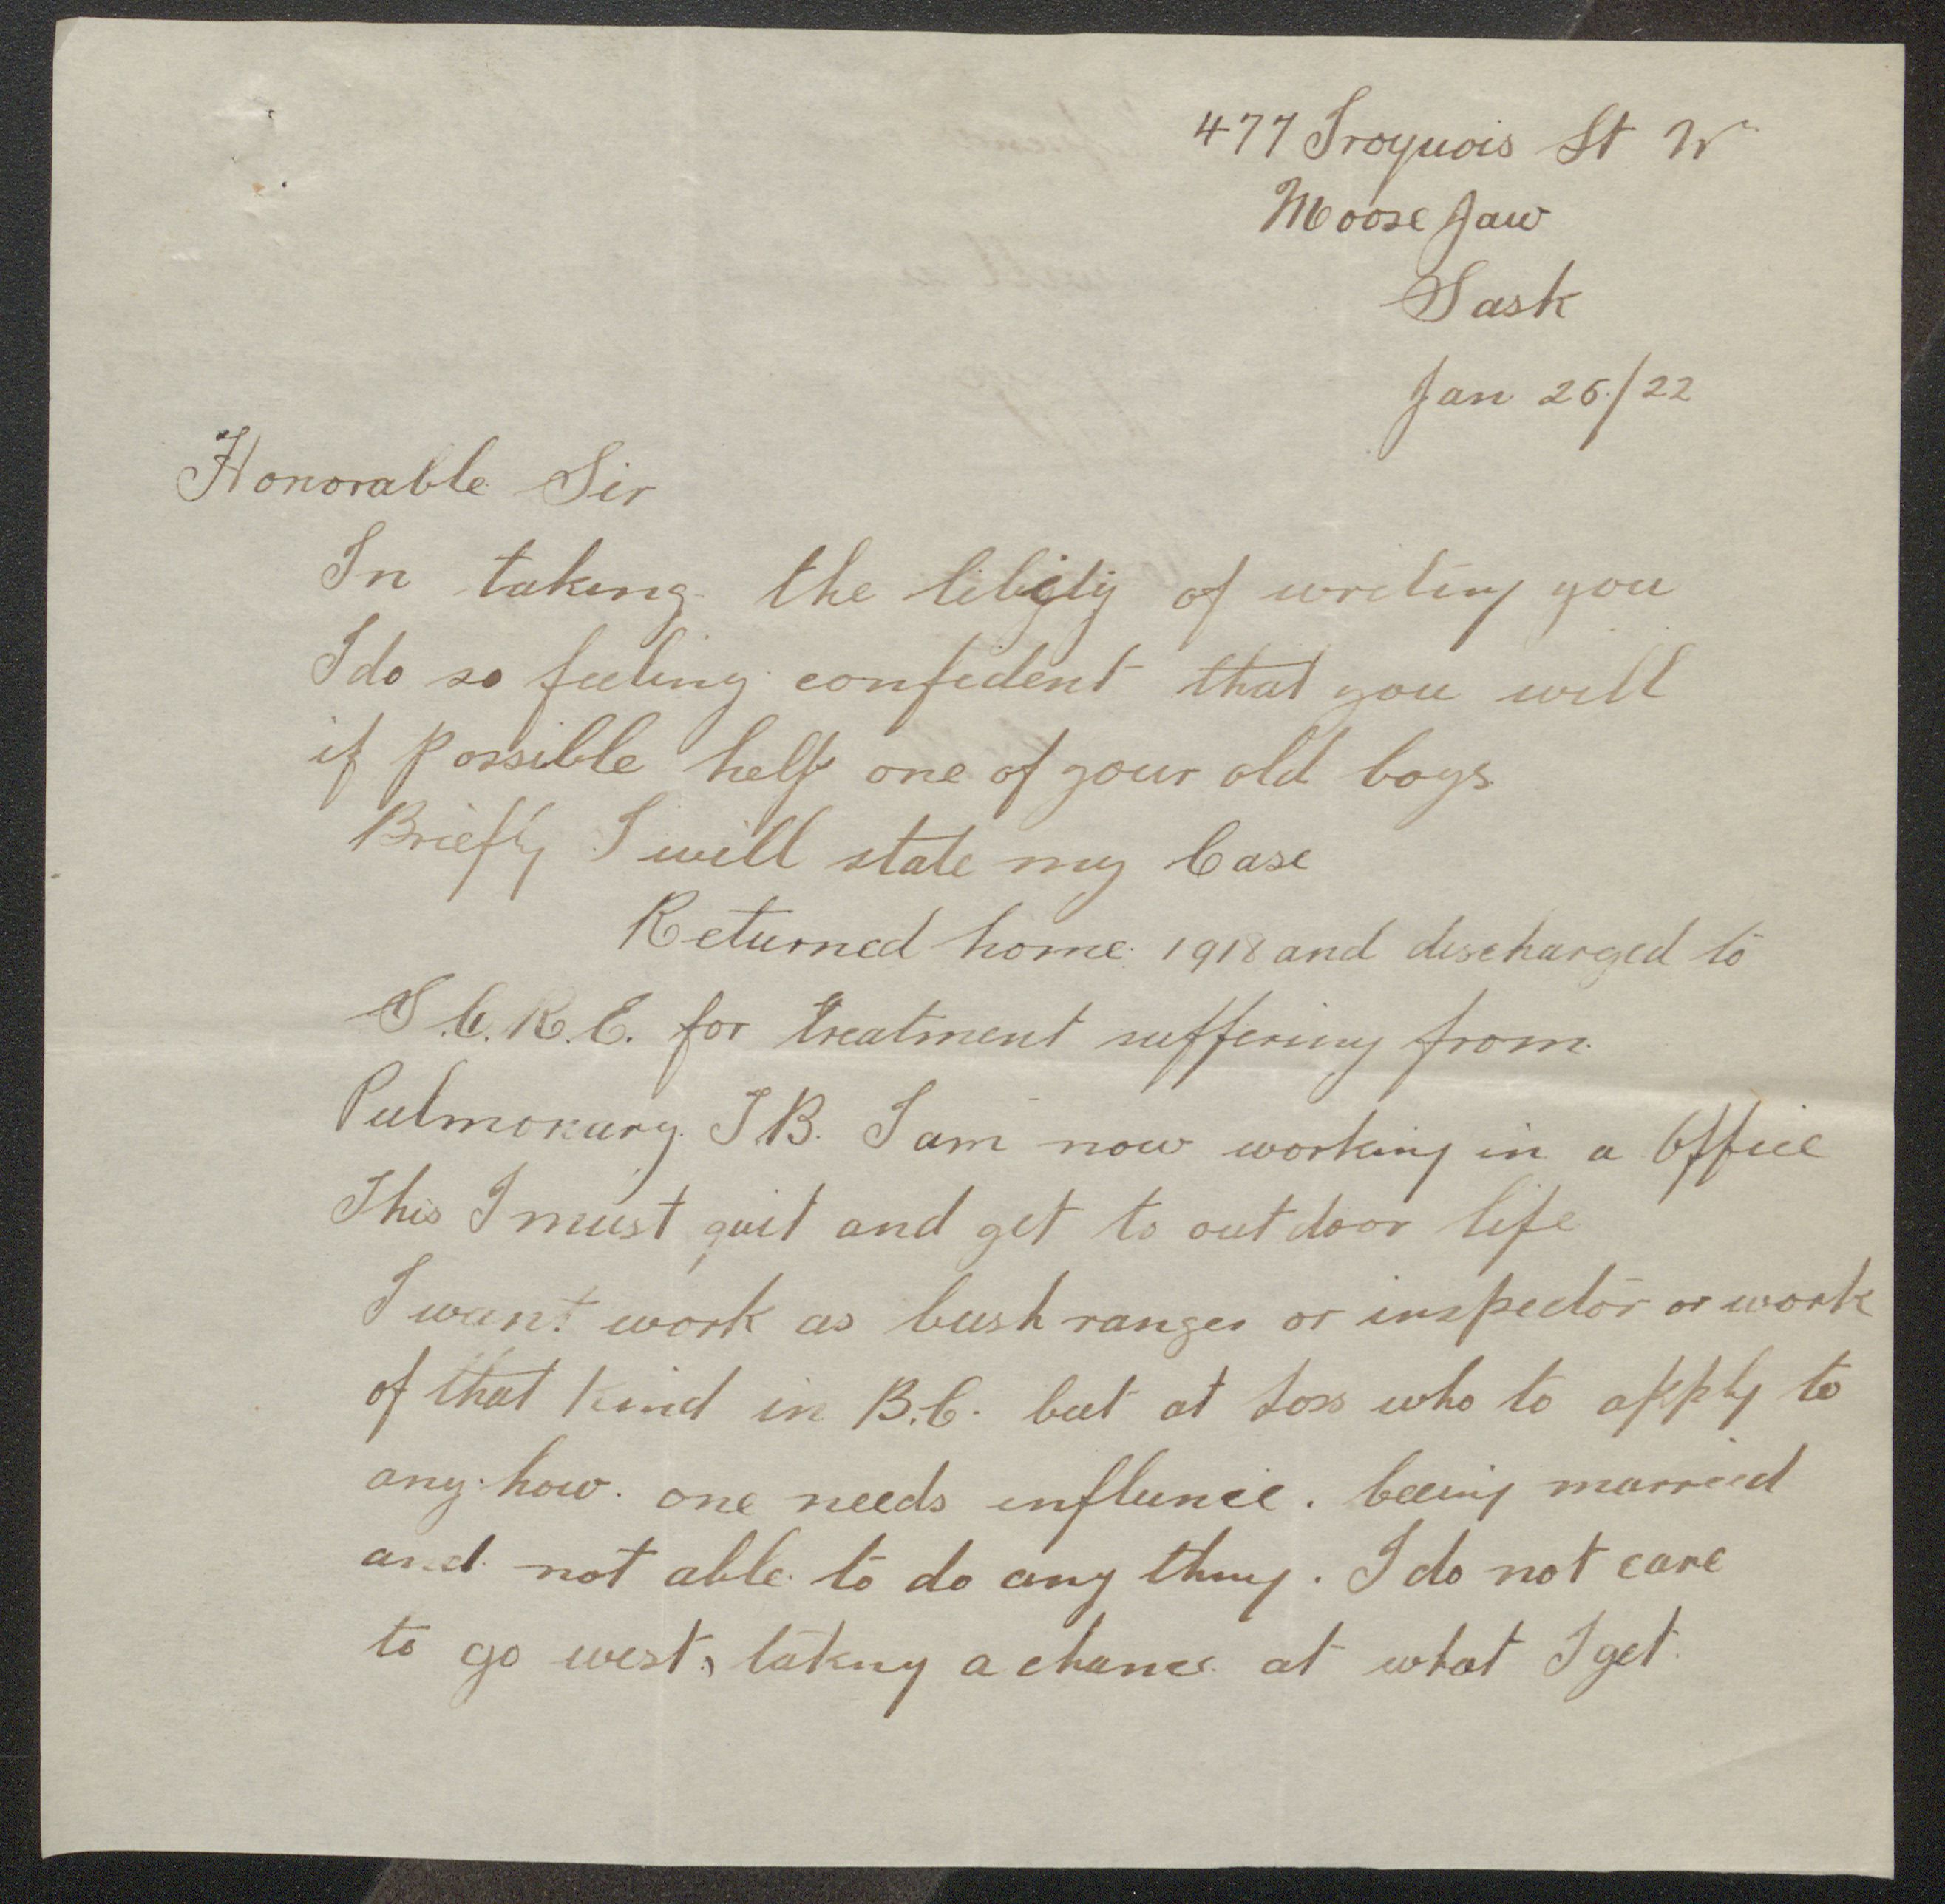 477 Iroquois St W
Moose Jaw
Sask
Jan 26/22
Honorable Sir
In taking the of writing you
I do so feeling confident that you will
if possible help one of your old boys.
Briefly I will state my Case
Returned home 1918 and discharged to
S.C.R.E. for treatment suffering from
Pulmonary T.B. I am now working in a Office
This I must quit and get to outdoor life
I want work as bush ranger or inspector or work
of that kind in B.C. but at loss who to apply to
any how. one needs influnce. being married
and not able to do any thing. I do not care
to go west, taking a chance at what I get.